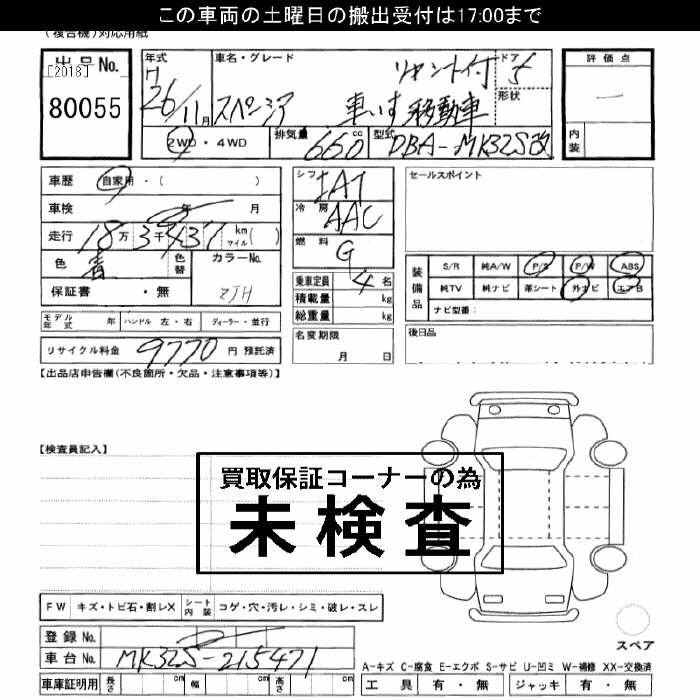 この車両の土曜日の搬出受付は17:00まで
(複合機)対応用紙
出品No. [2018]
80055
年式 H 26/11月
車名・グレード スペーシア 車いす移動車 リヤシート付
ドア 5
形状
2WD・4WD
排気量 660 cc
型式 DBA-MK32S改
評価点
内装
車歴 自家用・( )
車検 年 月
走行 18万3千431 km マイル ( )
色 青 色替 カラーNo. ZJH
保証書 ・無
モデル年式 年 ハンドル 左・右 ディーラー・並行
リサイクル料金 9770 円 預託済
シフト IAT
冷房 AAC
燃料 G
乗車定員 4 名
積載量 kg
総重量 kg
名変期限
月 日
セールスポイント
装備品 S/R 純A/W P/S P/W ABS
純TV 純ナビ 革シート 外ナビ エアB
ナビ型番:
後日品
【出品店申告欄(不良箇所・欠品・注意事項等)】
【検査員記入】
買取保証コーナーの為
未検査
FW キズ・トビ石・割レX シート内装 コゲ・穴・汚レ・シミ・破レ・スレ
登録No.
車台No. MK32S-215471
車庫証明用 長さ cm 幅 cm 高さ cm
スペア
A-キズ C-腐食 E-エクボ S-サビ U-凹ミ W-補修 XX-交換済
工具 有・無 ジャッキ 有・無